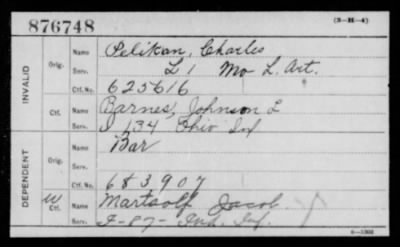 876748
(3-H-4)
INVALID
Orig.
Name Pelikan, Charles
Serv. L 1 Mo L. Art.
Ctf. No. 625616
Ctf.
Name Barnes, Johnson L
Serv. I 134 Ohio Inf
DEPENDENT
Orig.
Name Bar
Serv.
Ctf. No. 683907
W Ctf.
Name Martsolf Jacob
Serv. F-87- Ind. Inf.